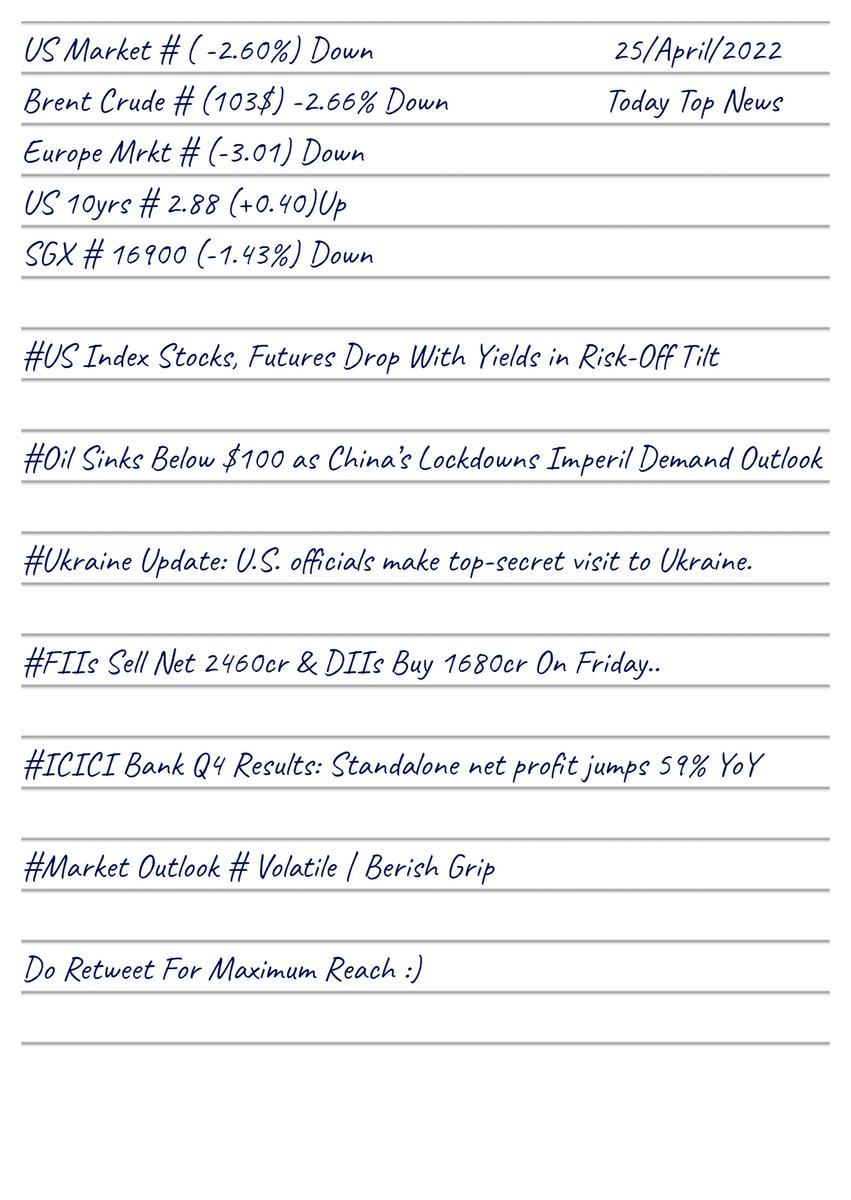 US Market # ( -2.60%) Down 25/April/2022
Brent Crude # (103$) -2.66% Down Today Top News
Europe Mrkt # (-3.01) Down
US 10yrs # 2.88 (+0.40)Up
SGX # 16900 (-1.43%) Down
#US Index Stocks, Futures Drop With Yields in Risk-Off Tilt
#Oil Sinks Below $100 as China’s Lockdowns Imperil Demand Outlook
#Ukraine Update: U.S. officials make top-secret visit to Ukraine.
#FIIs Sell Net 2460cr & DIIs Buy 1680cr On Friday..
#ICICI Bank Q4 Results: Standalone net profit jumps 59% YoY
#Market Outlook # Volatile | Berish Grip
Do Retweet For Maximum Reach :)